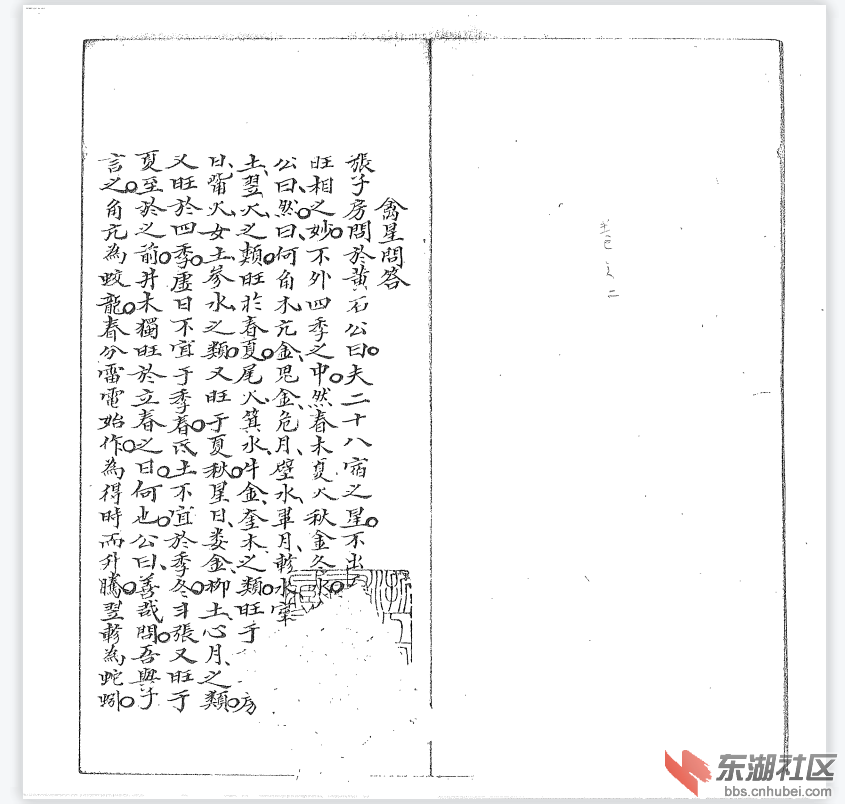 卷之二
禽星問答
張子房問於黃石公曰。夫二十八宿之星。不出
旺相之妙。不外四季之中。然春木夏火秋金冬水。
公曰、然。曰、何角木、亢金、児金、危月、壁水、畢月、軫水。室
土、翌火、之類。旺於春夏。尾火、箕水、牛金、奎木之類旺于房
日、觜火、女土、参水、之類。又旺于夏秋。星日、娄金、柳土、心月、之類。
又旺於四季。虚日不宜于季春。氐土不宜於季冬。斗張又旺于
夏至於之前。井木獨旺於立春之日。何也。公曰、善哉問。吾與子
言之。角亢為蛟龍。春分雷電始作。為得時而升騰。翌軫為蛇蚓。
东湖社区
bbs.cnhubei.com